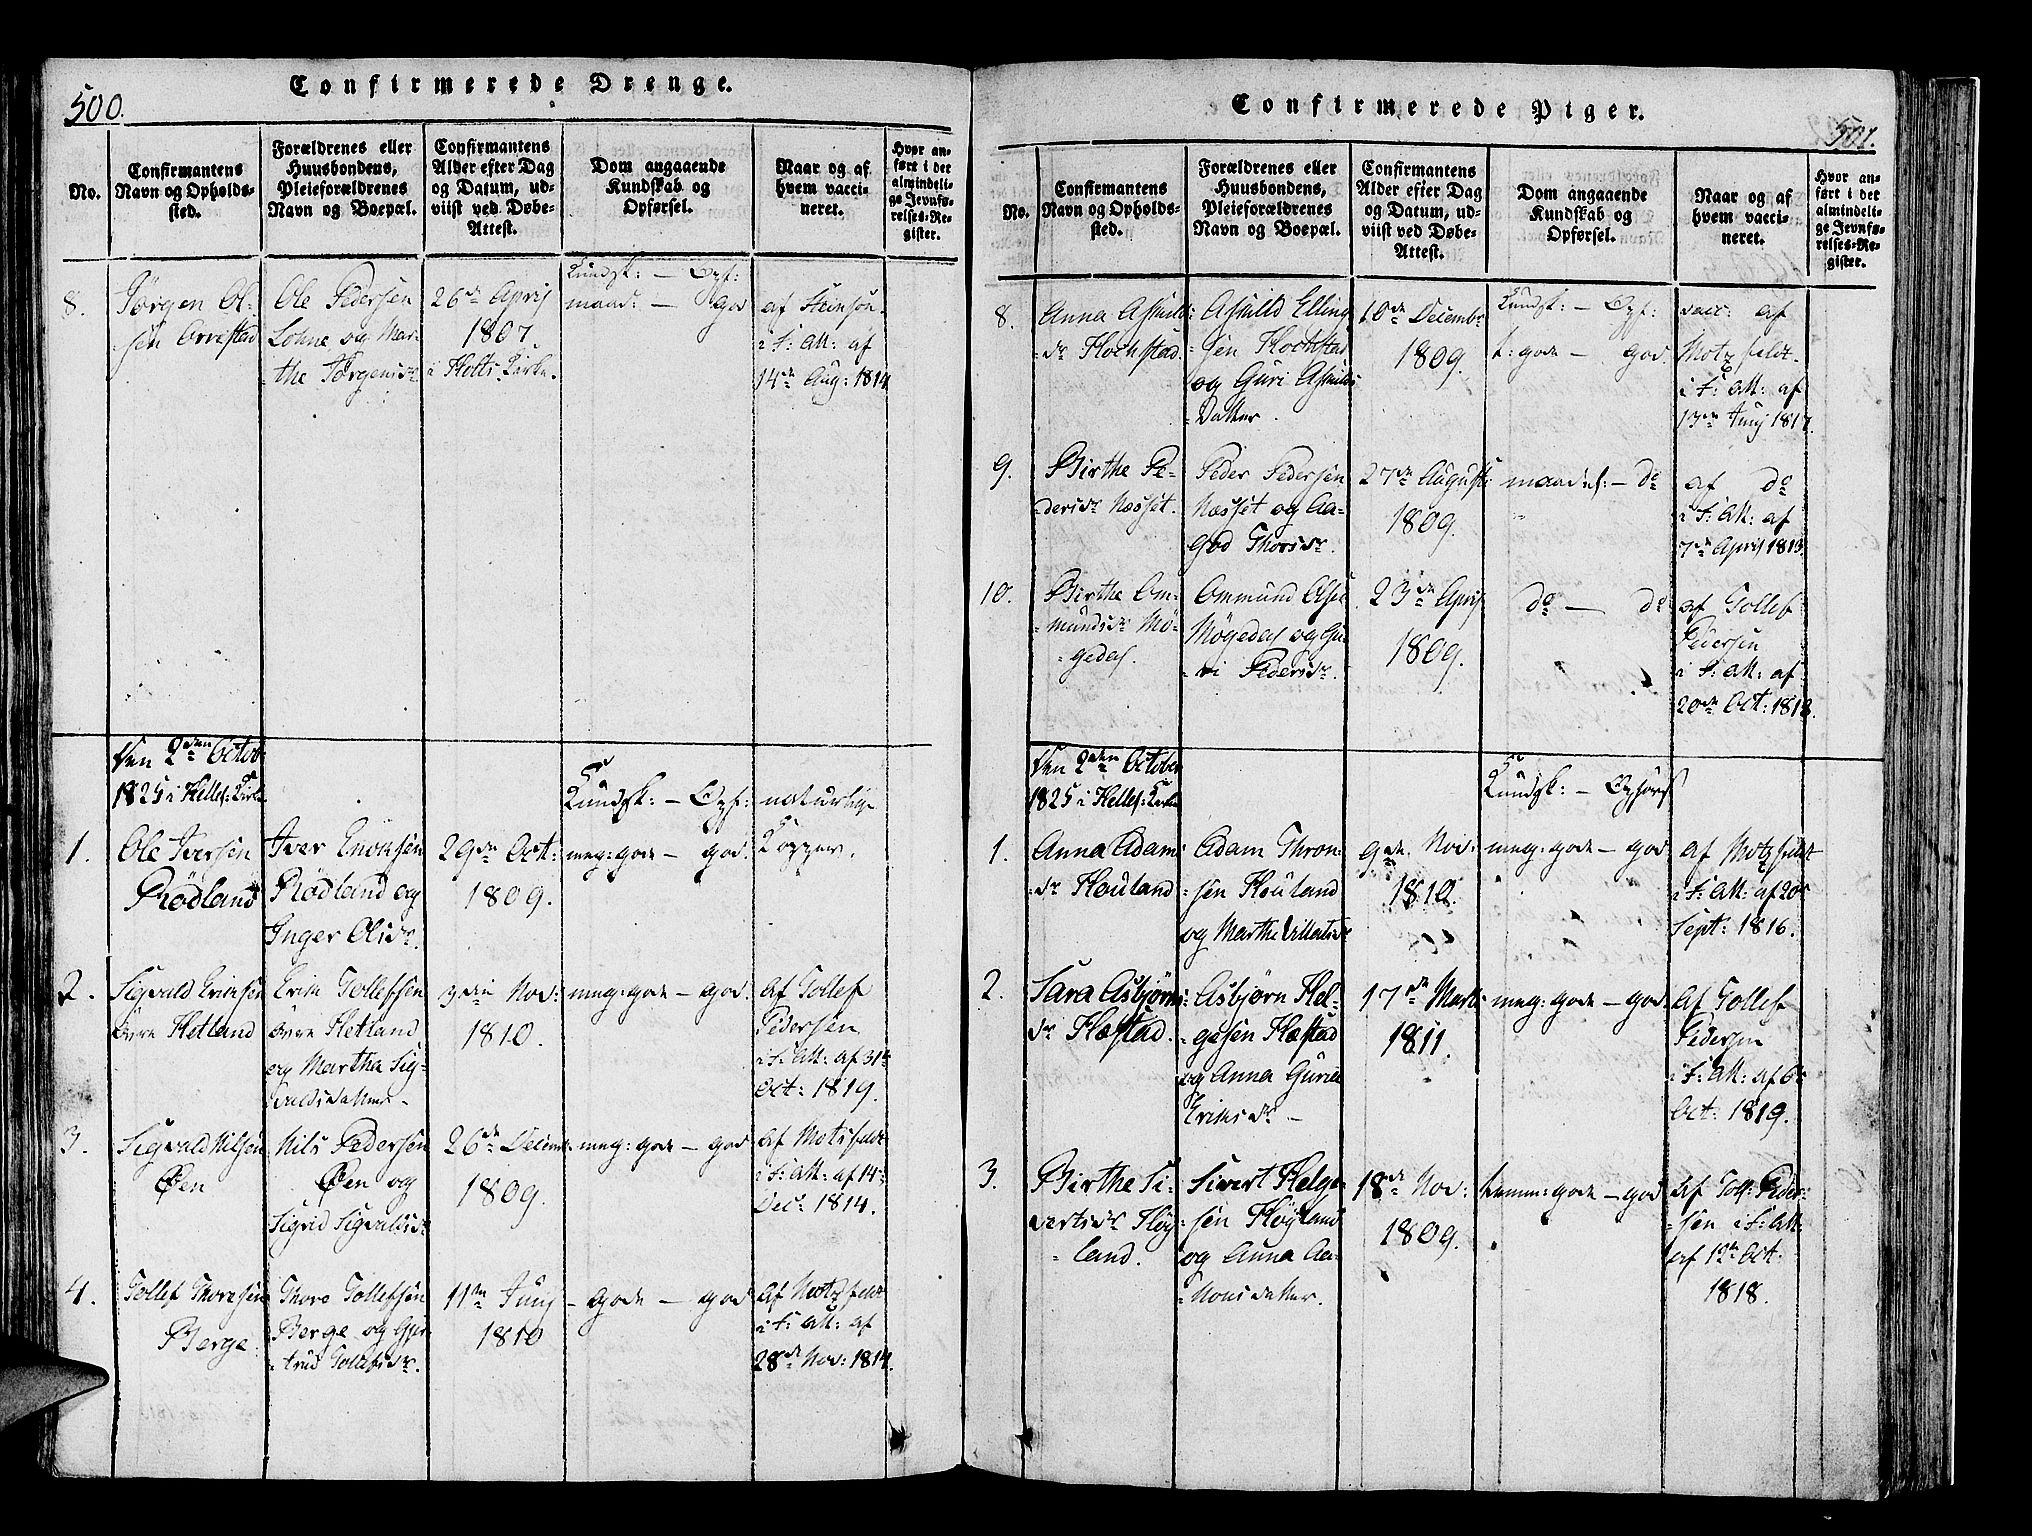 500.
Confirmerede Drenge.
No.
Confirmantens
Navn og Opholds-
sted.
Forældrenes eller
Huusbondens,
Pleieforældrenes
Navn og Boepæl.
Confirmantens
Alder efter Dag
og Datum, ud-
viist ved Døbe-
Attest.
Dom angaaende
Kundskab og
Opførsel.
Naar og af
hvem vacci-
neret.
Hvor an-
ført i det
almindeli-
ge Jevnfø-
relses-Re-
gister.
8.
Jørgen Ol-
sen Orrestad
Ole Pedersen
Lohne og Mar-
the Jørgensdr
26de April
1807.
i Helts Kirke.
Kundsk: — Opf:
maad: — god
af Steinson
i F: Att: af
14de Aug: 1814
Den 2den Octob
1825 i Hellel: Kirke
Kundsk: — Opf:
1.
Ole Iversen
Rødland
Iver Enoksen
Rødland og
Inger Olisdr.
29de Oct:
1809.
meg: gode — god.
naturlige
Kopper.
2.
Sigvald Eriksen
øvre Hetland
Erik Tollefsen
øvre Hetland
og Martha Sig-
valdsdatter
3die Nov:
1810.
meg: gode — god.
af Tollef
Pedersen
i F: Att: af 31te
Oct: 1819.
3.
Sigvald Nilsen
Øen
Nils Pedersen
Øen og
Sigrid Sigvaldsdr
26de Decemb:
1809.
meg: gode — god
af Motzfeldt
i F: Att: af 14de
Dec: 1814.
4.
Tollef Thoresen
Berge
Thore Tollefsen
Berge og Gjer-
trud Tollefsdr.
11te Juny
1810
gode — god
af Motzfeldt
i F: Att: af
28de Nov: 1814.
501.
Confirmerede Piger.
No.
Confirmantens
Navn og Opholds-
sted.
Forældrenes eller
Huusbondens,
Pleieforældrenes
Navn og Boepæl.
Confirmantens
Alder efter Dag
og Datum, ud-
viist ved Døbe-
Attest.
Dom angaaende
Kundskab og
Opførsel.
Naar og af
hvem vacci-
neret.
Hvor an-
ført i det
almindeli-
ge Jevnfø-
relses-Re-
gister.
8.
Anna Asuld:
dr Hochstad.
Asuld Elling
sen Hochstad
og Guri Asulds
Datter.
10de Decembr
1809.
Kundsk: — Opf:
t: gode — god
vacc: af
Motzfeldt
i F: Att: af
17de Juny 1817.
9.
Birthe Pe-
dersdr Næsset.
Peder Pedersen
Næsset og Aa-
god Thorsdr.
27de August:
1809.
maadel: — do
af do
i F: Att: af
7de April 1813.
10.
Birthe Om-
mundsdr Mø-
gedal.
Ommund Olsen
Møgedal og Gu-
ri Pedersdr.
23de April
1809.
do — do
af Tollef
Pedersen
i F: Att: af
20de Oct: 1818.
Den 2den October
1825 i Hellel: Kirke
Kundsk: — Opførsl
1.
Anna Adam:
dr Houland
Adam Thron-
sen Houland
og Marthe
9de Nov:
1810.
meg: gode — god
af Motzfeldt
i F: Att: af 20de
Sept: 1816.
2.
Sara Asbjørns
dr Hæstad.
Asbjørn Hel-
gesen Hæstad
og Anna Guria
Eriksdr. —
17de Marts
1811.
meg: gode — god
af Tollef
Pedersen
i F: Att: af 6te
Oct: 1819.
3.
Birthe Si-
vertsdr Høy
land.
Sivert Helge
sen Høyland
og Anna Aa-
nonsdatter.
18de Nov:
1809.
temm: gode — god
af Toll: Peder-
sen i F: Att:
af 19de Oct:
1818.